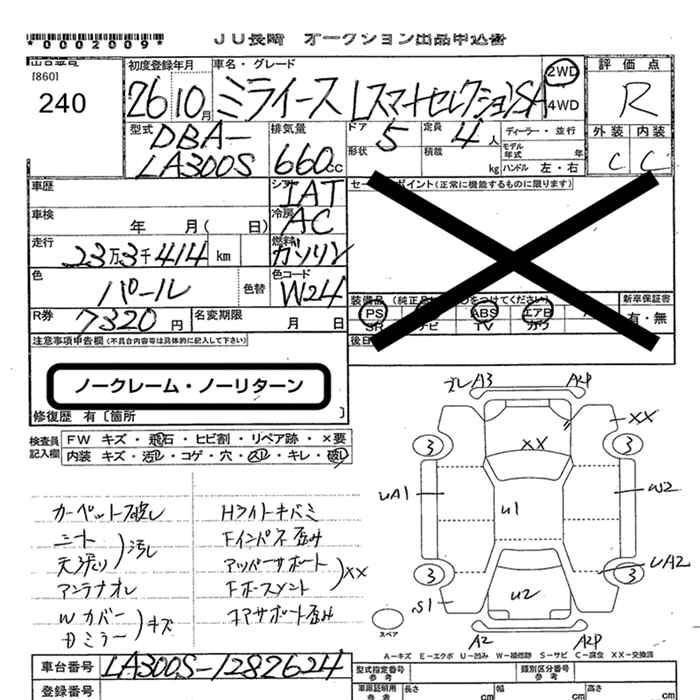 *0002009*
JU長崎 オークション出品申込書
[860]
240
初度登録年月
26 10月
車名・グレード
ミライース LスマートセレクションSA
2WD
4WD
評価点
R
外装 内装
C C
型式
DBA-
LA300S
排気量
660cc
ドア 5
形状
定員 4人
積載 kg
ディーラー・並行
モデル年式 年
ハンドル 左・右
車歴
シフト IAT
車検 年 月( 日)
冷房 AC
走行 23万3千414 km
燃料 ガソリン
色 パール 色替
色コード W24
R券 7320円
名変期限 月 日
セールスポイント(正常に機能するものに限ります)
装備品
PS ABS エアB
SR ナビ TV カワ
新車保証書
有・無
注意事項申告欄(不具合内容等は具体的に記入して下さい)
ノークレーム・ノーリターン
修復歴 有〔箇所 〕
検査員記入欄
FW キズ・飛石・ヒビ割・リペア跡・×要
内装 キズ・汚レ・コゲ・穴・スレ・キレ・破レ
カーペット破レ
シート
天張り
汚レ
アンテナオレ
Wカバー
Dミラー
キズ
Hライトキバミ
Fインパネ歪み
アッパーサポート
Fホースメント
XX
コアサポート歪み
ズレ A3 A2P
XX
XX
3 3
UA1 U1 W2
3 3
UA2
S1 U2
A2 A2P
スペア
A-キズ E-エクボ U-凹み W-補修跡 S-サビ C-腐食 XX-交換済
車台番号 LA300S-1282624
登録番号
型式指定番号 参考
類別区分番号 参考
車庫証明用 参考
長さ cm
幅 cm
高さ cm